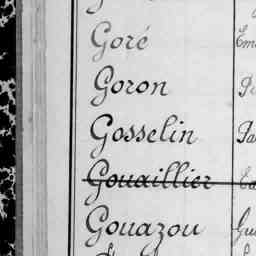 Goré
Goron
Gosselin
Gouaillier
Gouazou